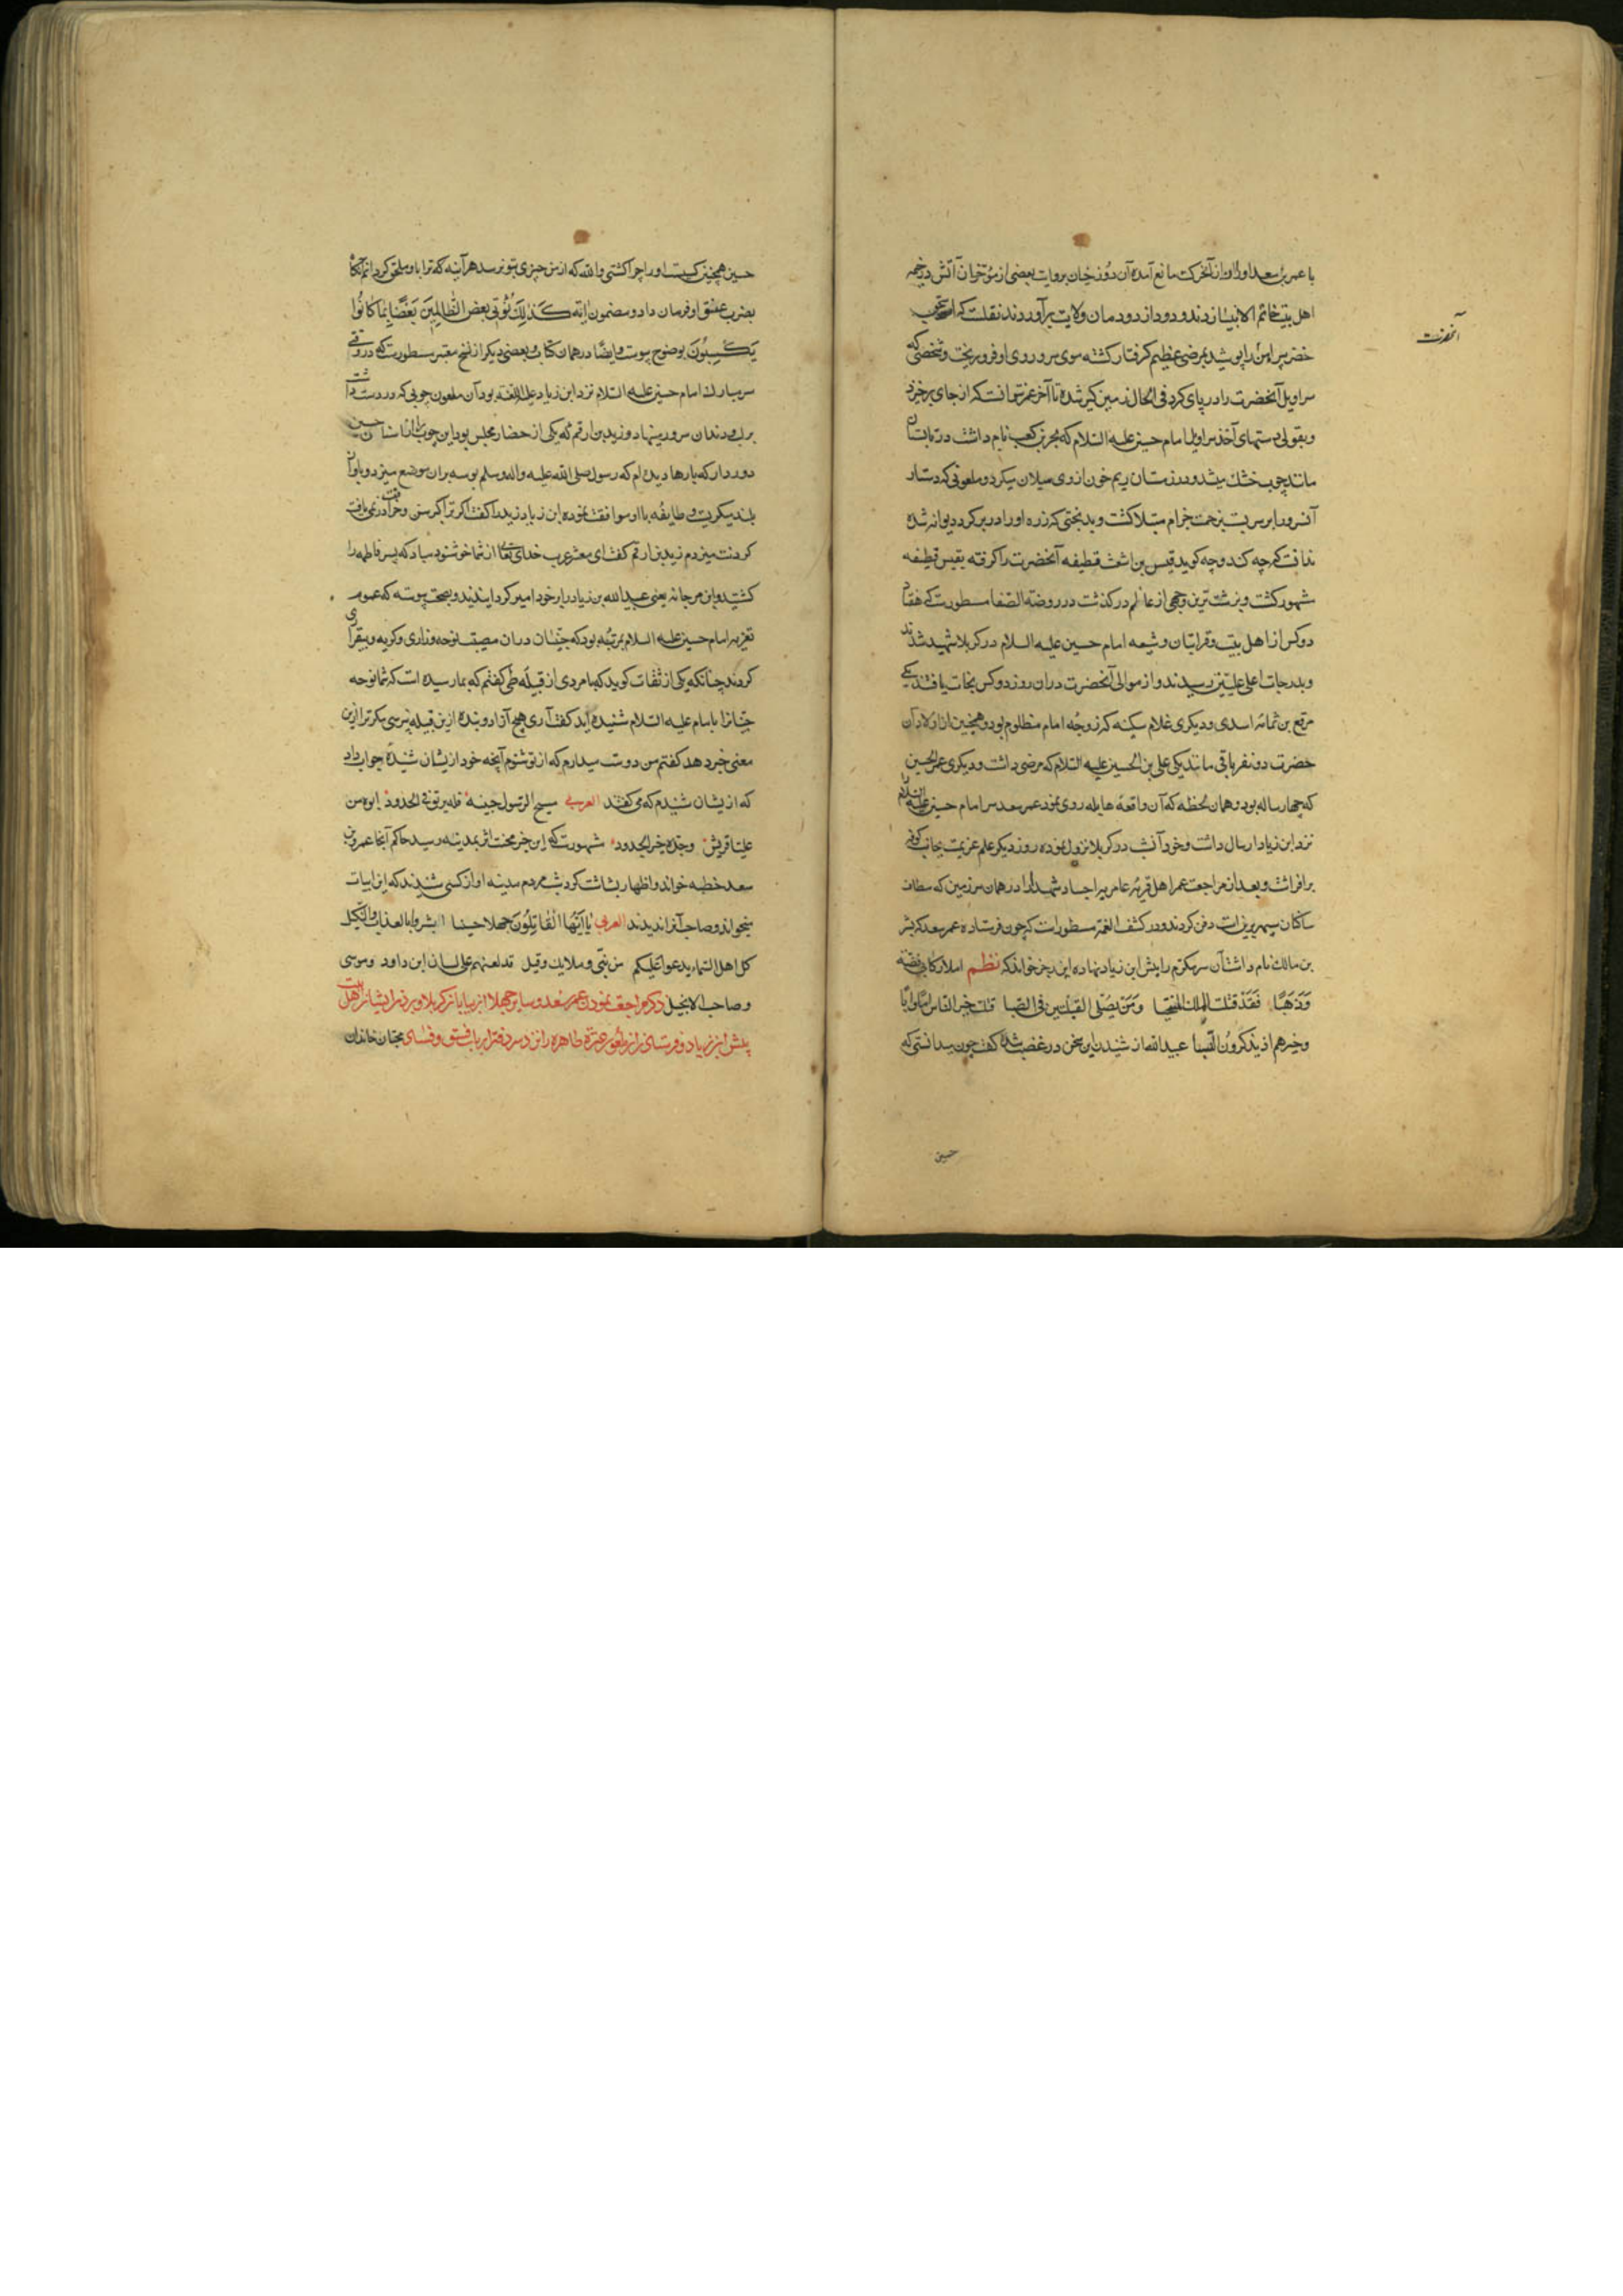 با عمر بن سعد او را از آن حرکت مانع آمده آن دوزخیان بروایت بعضی از مؤرخان آتش در خیمه
اهل بیت خاتم الانبیا زدند و دود از دودمان ولایت برآوردند نقلست که اسحق بن
آنحضرت
خضر پیراهن را پوشید بمرضی عظیم گرفتار گشته موی سر و روی او فرو ریخت و شخصی که
سراویل آنحضرت را در پای کرد فی الحال زمین گیر شده تا آخر عمر نتوانست که از جای برخیزد
و بقولی دستهای آخذ سراویل امام حسین علیه السلام که بحر بن کعب نام داشت در تابستان
مانند چوب خشک میشد و در زمستان ریم و خون از وی سیلان میکرد و ملعونی که دستار
آن سرور را بر سر بست بزحمت جذام مبتلا گشت و بدبختی که زره او را در بر کرد دیوانه شده
ندانست که چه کند و چه گوید قیس بن اشعث قطیفه آنحضرت را گرفته بقیس قطیفه
مشهور گشت و بزشت ترین وجهی از عالم در گذشت در روضة الصفا مسطورست که هفتاد
دو کس از اهل بیت و قرابتان و شیعه امام حسین علیه السلام در کربلا شهید شدند
و بدرجات اعلی علیین رسیدند و از موالی آنحضرت در آن روز دو کس نجات یافتند یکی
مرقع بن ثمامه اسدی و دیگری غلام سکینه که زوجه امام مظلوم بود و همچنین از اولاد آن
حضرت دو نفر باقی ماندند یکی علی بن الحسین علیه السلام که مرضی داشت و دیگری عمر بن الحسین
که چهار ساله بود و همان لحظه که آن واقعه هایله روی نمود عمر سعد سر امام حسین علیه السلام
نزد ابن زیاد ارسال داشت و خود آن شب در کربلا نزول نموده روز دیگر علم عزیمت بجانب کوفه
برافراشت و بعد از مراجعت عمر اهل قریه عامریه اجساد شهدا را در همان سرزمین که مطاف
ساکنان سپهر برینست دفن کردند و در کشف الغمه مسطورست که چون فرستاده عمر سعد که بشر
بن مالک نام داشت آن سر مکرم را پیش ابن زیاد نهاده این رجز خواند که نظم املأ رکابی فضة
و ذهبا فقد قتلت الملک المحجبا و من یصلی القبلتین فی الصبا قتلت خیر الناس اما و ابا
و خیرهم اذ یذکرون النسبا عبیدالله از شنیدن این سخن در غضب شده گفت چون میدانستی که
حسین
حسین همچنین کسیست او را چرا کشتی والله که از من چیزی بتو نرسد هر آینه که ترا باو ملحق گردانم آنگاه
بضرب عنق او فرمان داد و مضمون آیه کذلک نولی بعض الظالمین بعضا بما کانوا
یکسبون بوضوح پیوست و ایضا در همان کتاب و بعضی دیگر از نسخ معتبر مسطورست که در وقتی
سر مبارک امام حسین علیه السلام نزد ابن زیاد علیه اللعنه بود آن ملعون چوبی که در دست داشت
بر لب و دندان سرور مینهاد و زید بن ارقم که یکی از حضار مجلس بود این چوب را از
دور دار که بارها دیده ام که رسول صلی الله علیه و آله وسلم بوسه بر آن موضع میزد و بآواز
بلند بگریست و طایفه با او موافقت نموده ابن زیاد زید را گفت اگر ترا کبر سن و خرافت در نمی یافت
گردنت میزدم زید بن ارقم گفت ای معشر عرب خدای تعالی از شما خوشنود مباد که پسر فاطمه را
کشتید و ابن مرجانه یعنی عبیدالله بن زیاد را بر خود امیر گردانیدید و بصحت پیوسته که عموم
تعزیه امام حسین علیه السلام بمرتبه بود که جنیان در آن مصیبت نوحه و زاری و گریه و بیقراری
کردند چنانکه یکی از ثقات گوید که با مردی از قبیله طی گفتم که بما رسیده است که شما نوحه
جنیانرا بامام علیه السلام شنیده آید گفت آری هیچ آزاد و بنده ازین قبیله نپرسی مگر ترا ازین
معنی خبر دهد گفتم من دوست میدارم که از تو شنوم آنچه خود ازیشان شنیده جواب داد
که ازیشان شنیدم که می گفتند العربی مسح الرسول جبینه فله بریق فی الخدود ابوه من
علیا قریش و جده خیر الجدود مشهورست که این خبر محنت اثر بمدینه رسید حاکم آنجا عمرو بن
سعد خطبه خواند و اظهار بشاشت کرد شب مردم مدینه آواز کسی شنیدند که این ابیات
میخواند و صاحب آنرا ندیدند العربی یا ایها القاتلون جهلا حسینا ابشروا بالعذاب و التنکیل
کل اهل السماء یدعوا علیکم من نبی و ملایک و قبیل قد لعنتم علی لسان ابن داود و موسی
و صاحب الانجیل ذکر مراجعت نمودن عمر سعد و سایر جهلا از بیابان کربلا و بردن ایشان اهل بیت
پیش ابن زیاد و فرستادن آن ملعون عترة طاهره را نزد سر دفتر ارباب فسق و فساد محبان خاندان